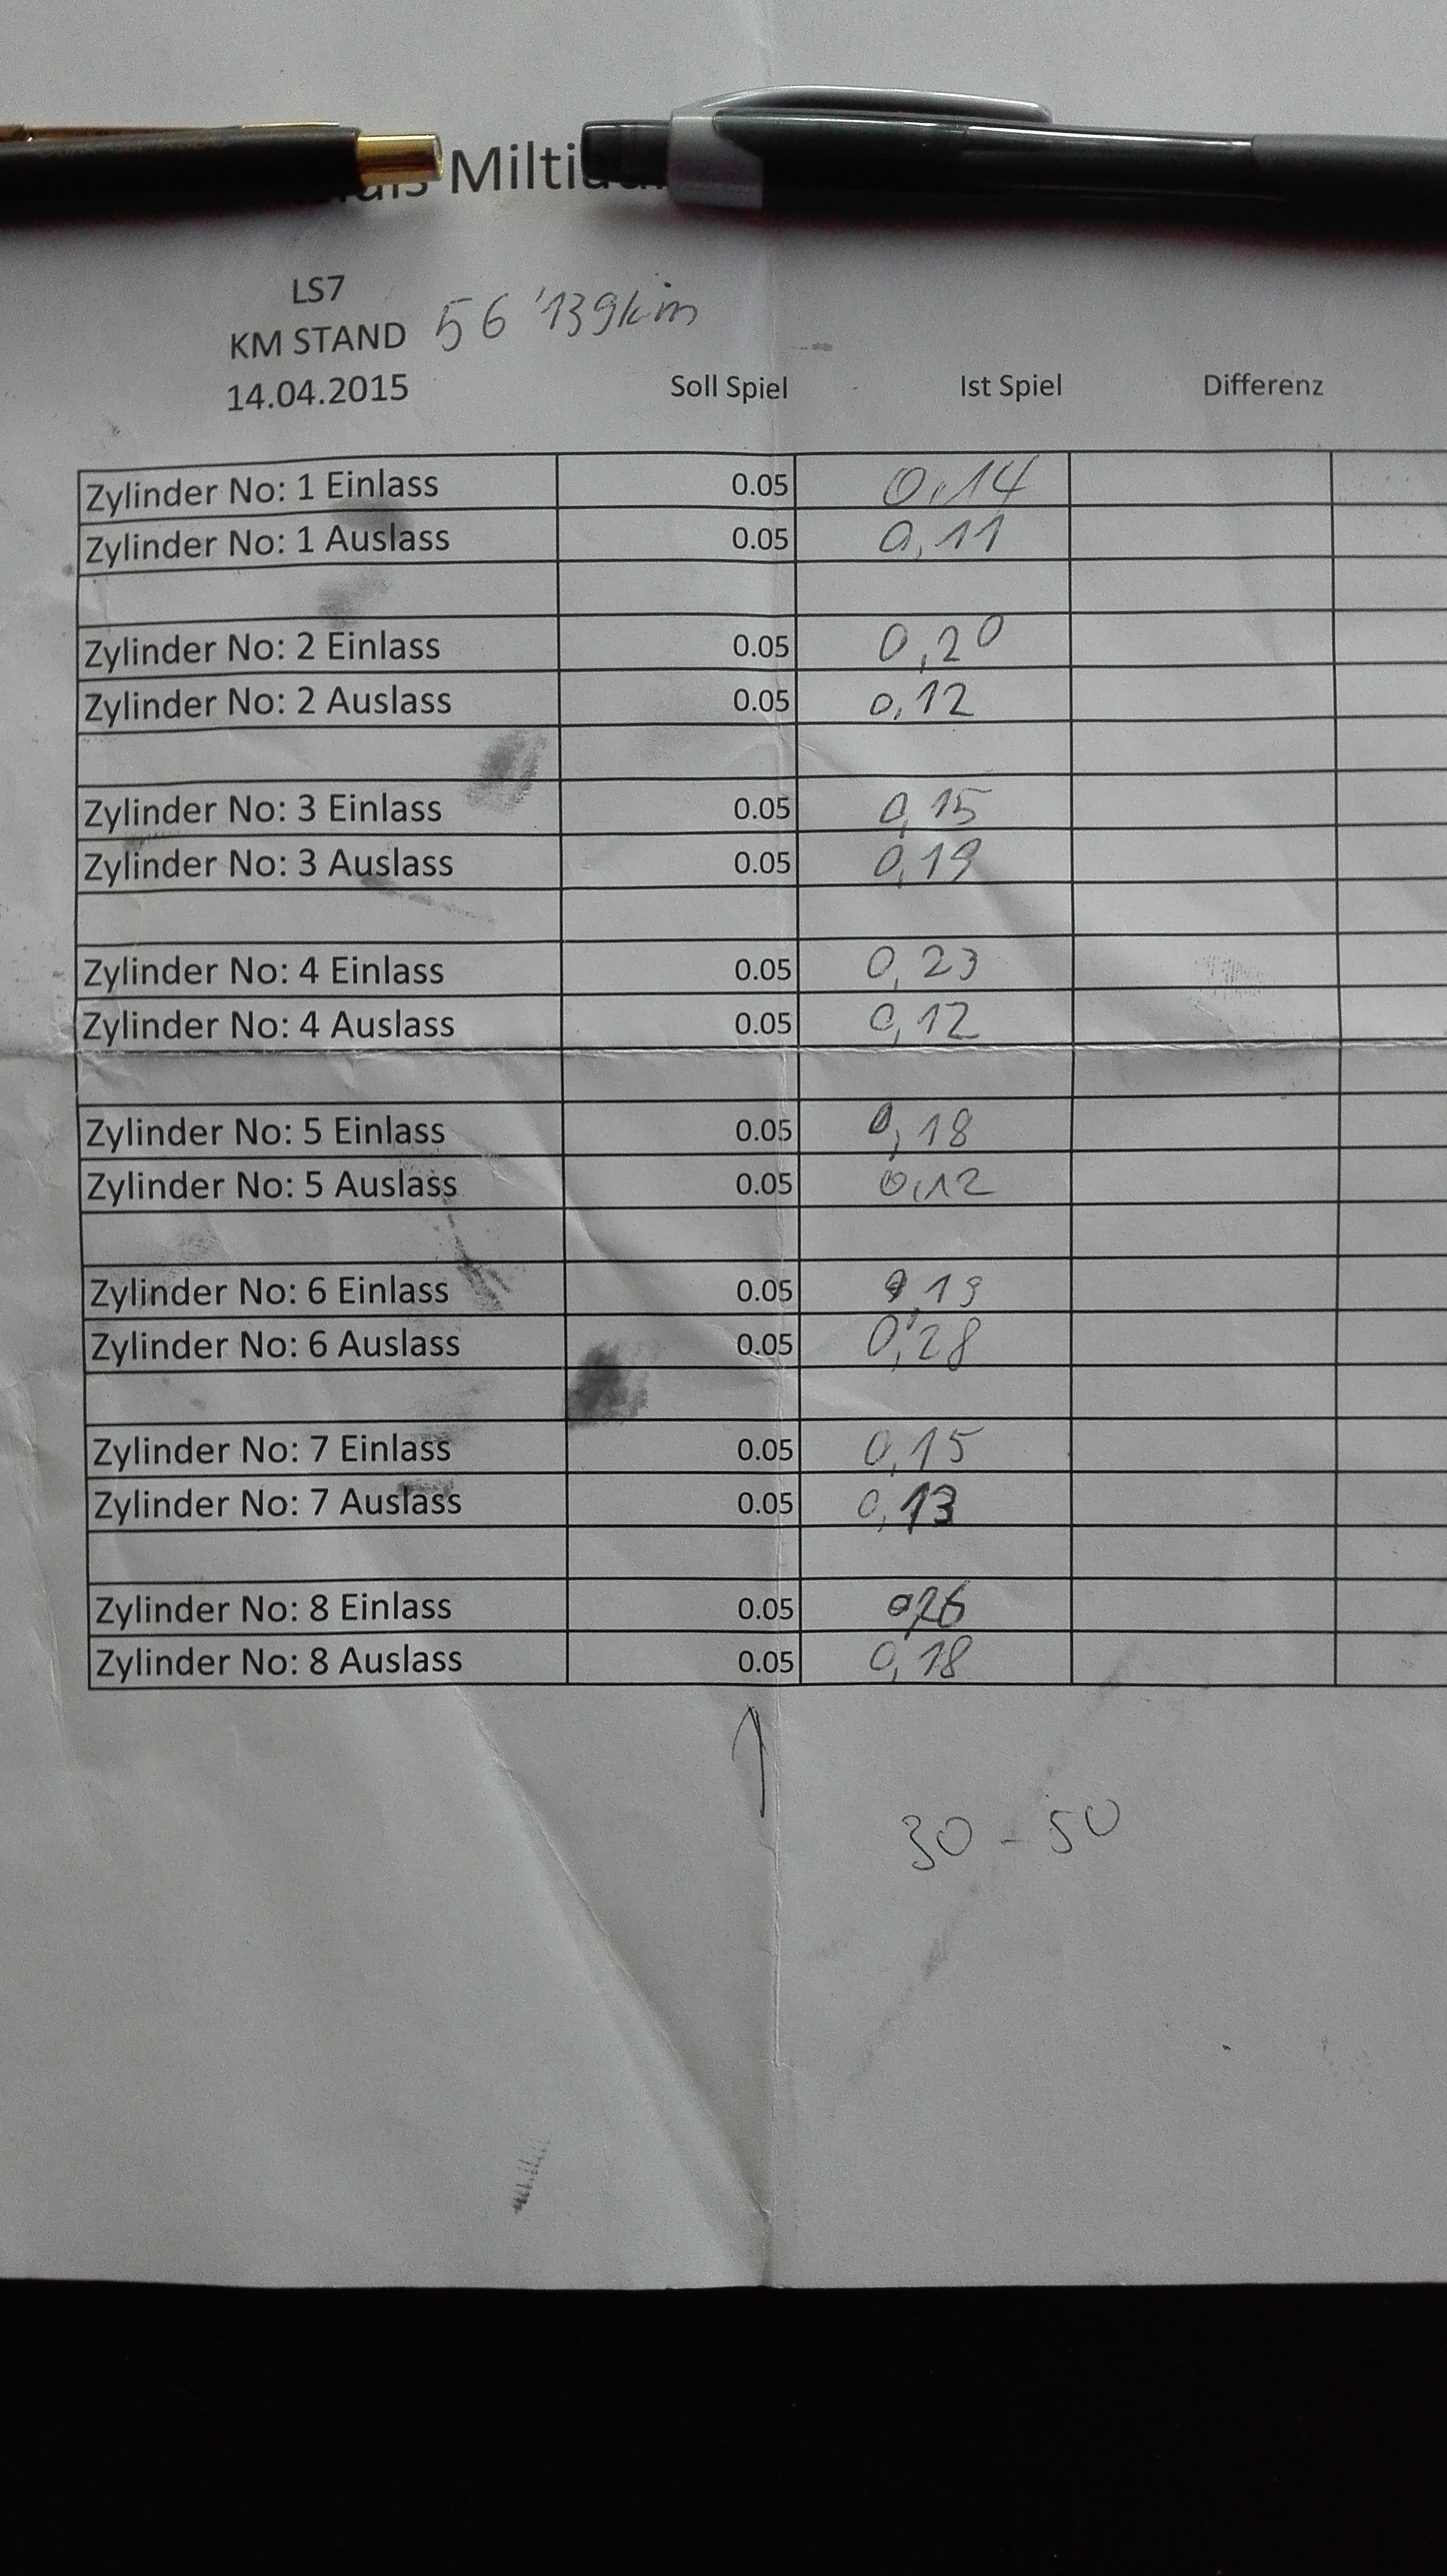 LS7
KM STAND 56'139km
14.04.2015 Soll Spiel Ist Spiel Differenz
Zylinder No: 1 Einlass 0.05 0,14
Zylinder No: 1 Auslass 0.05 0,11
Zylinder No: 2 Einlass 0.05 0,20
Zylinder No: 2 Auslass 0.05 0,12
Zylinder No: 3 Einlass 0.05 0,15
Zylinder No: 3 Auslass 0.05 0,19
Zylinder No: 4 Einlass 0.05 0,23
Zylinder No: 4 Auslass 0.05 0,12
Zylinder No: 5 Einlass 0.05 0,18
Zylinder No: 5 Auslass 0.05 0,12
Zylinder No: 6 Einlass 0.05 0,19
Zylinder No: 6 Auslass 0.05 0,28
Zylinder No: 7 Einlass 0.05 0,15
Zylinder No: 7 Auslass 0.05 0,13
Zylinder No: 8 Einlass 0.05
Zylinder No: 8 Auslass 0.05 0,18
30 - 50